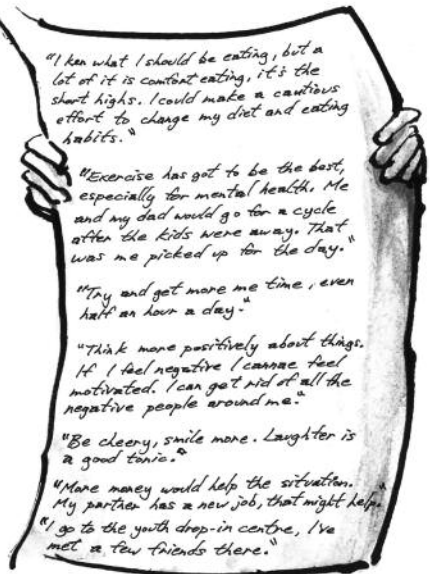 "I ken what I should be eating, but a
lot of it is comfort eating, it's the
short highs. I could make a cautious
effort to change my diet and eating
habits."
"Exercise has got to be the best,
especially for mental health. Me
and my dad would go for a cycle
after the kids were away. That
was me picked up for the day."
"Try and get more me time, even
half an hour a day."
"Think more positively about things.
If I feel negative I cannae feel
motivated. I can get rid of all the
negative people around me."
"Be cheery, smile more. Laughter is
a good tonic."
"More money would help the situation.
My partner has a new job, that might help."
"I go to the youth drop-in centre, I've
met a few friends there."